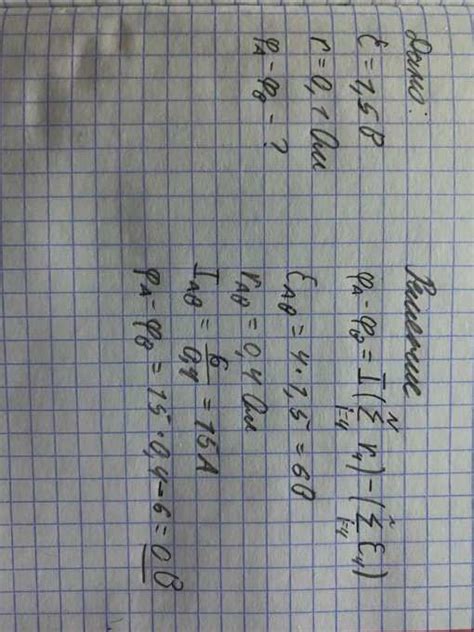 Дано:
ε = 1,5 В
r = 0,1 Ом
φA - φB - ?
Решение
φA - φB = I(∑ r4) - (∑ ε4)
εAB = 4·1,5 = 6В
rAB = 0,4 Ом
IAB = 6/0,4 = 15А
φA - φB = 15·0,4-6 = 0В